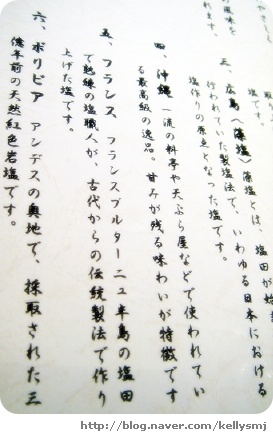 風味を
れます。
三、広島(藻塩) 藻塩とは、塩田が始
行われていた製塩法で、いわゆる日本における
塩作りの原点となった塩です。
四、沖縄 一流の料亭や天ぷら屋などで使われてい
る最高級の逸品。甘みが残る味わいが特徴です
五、フランス フランスブルターニュ半島の塩田
で熟練の塩職人が、古代からの伝統製法で作り
上げた塩です。
六、ボリビア アンデスの奥地で、採取された三
億年前の天然紅色岩塩です。
http://blog.naver.com/kellysmj